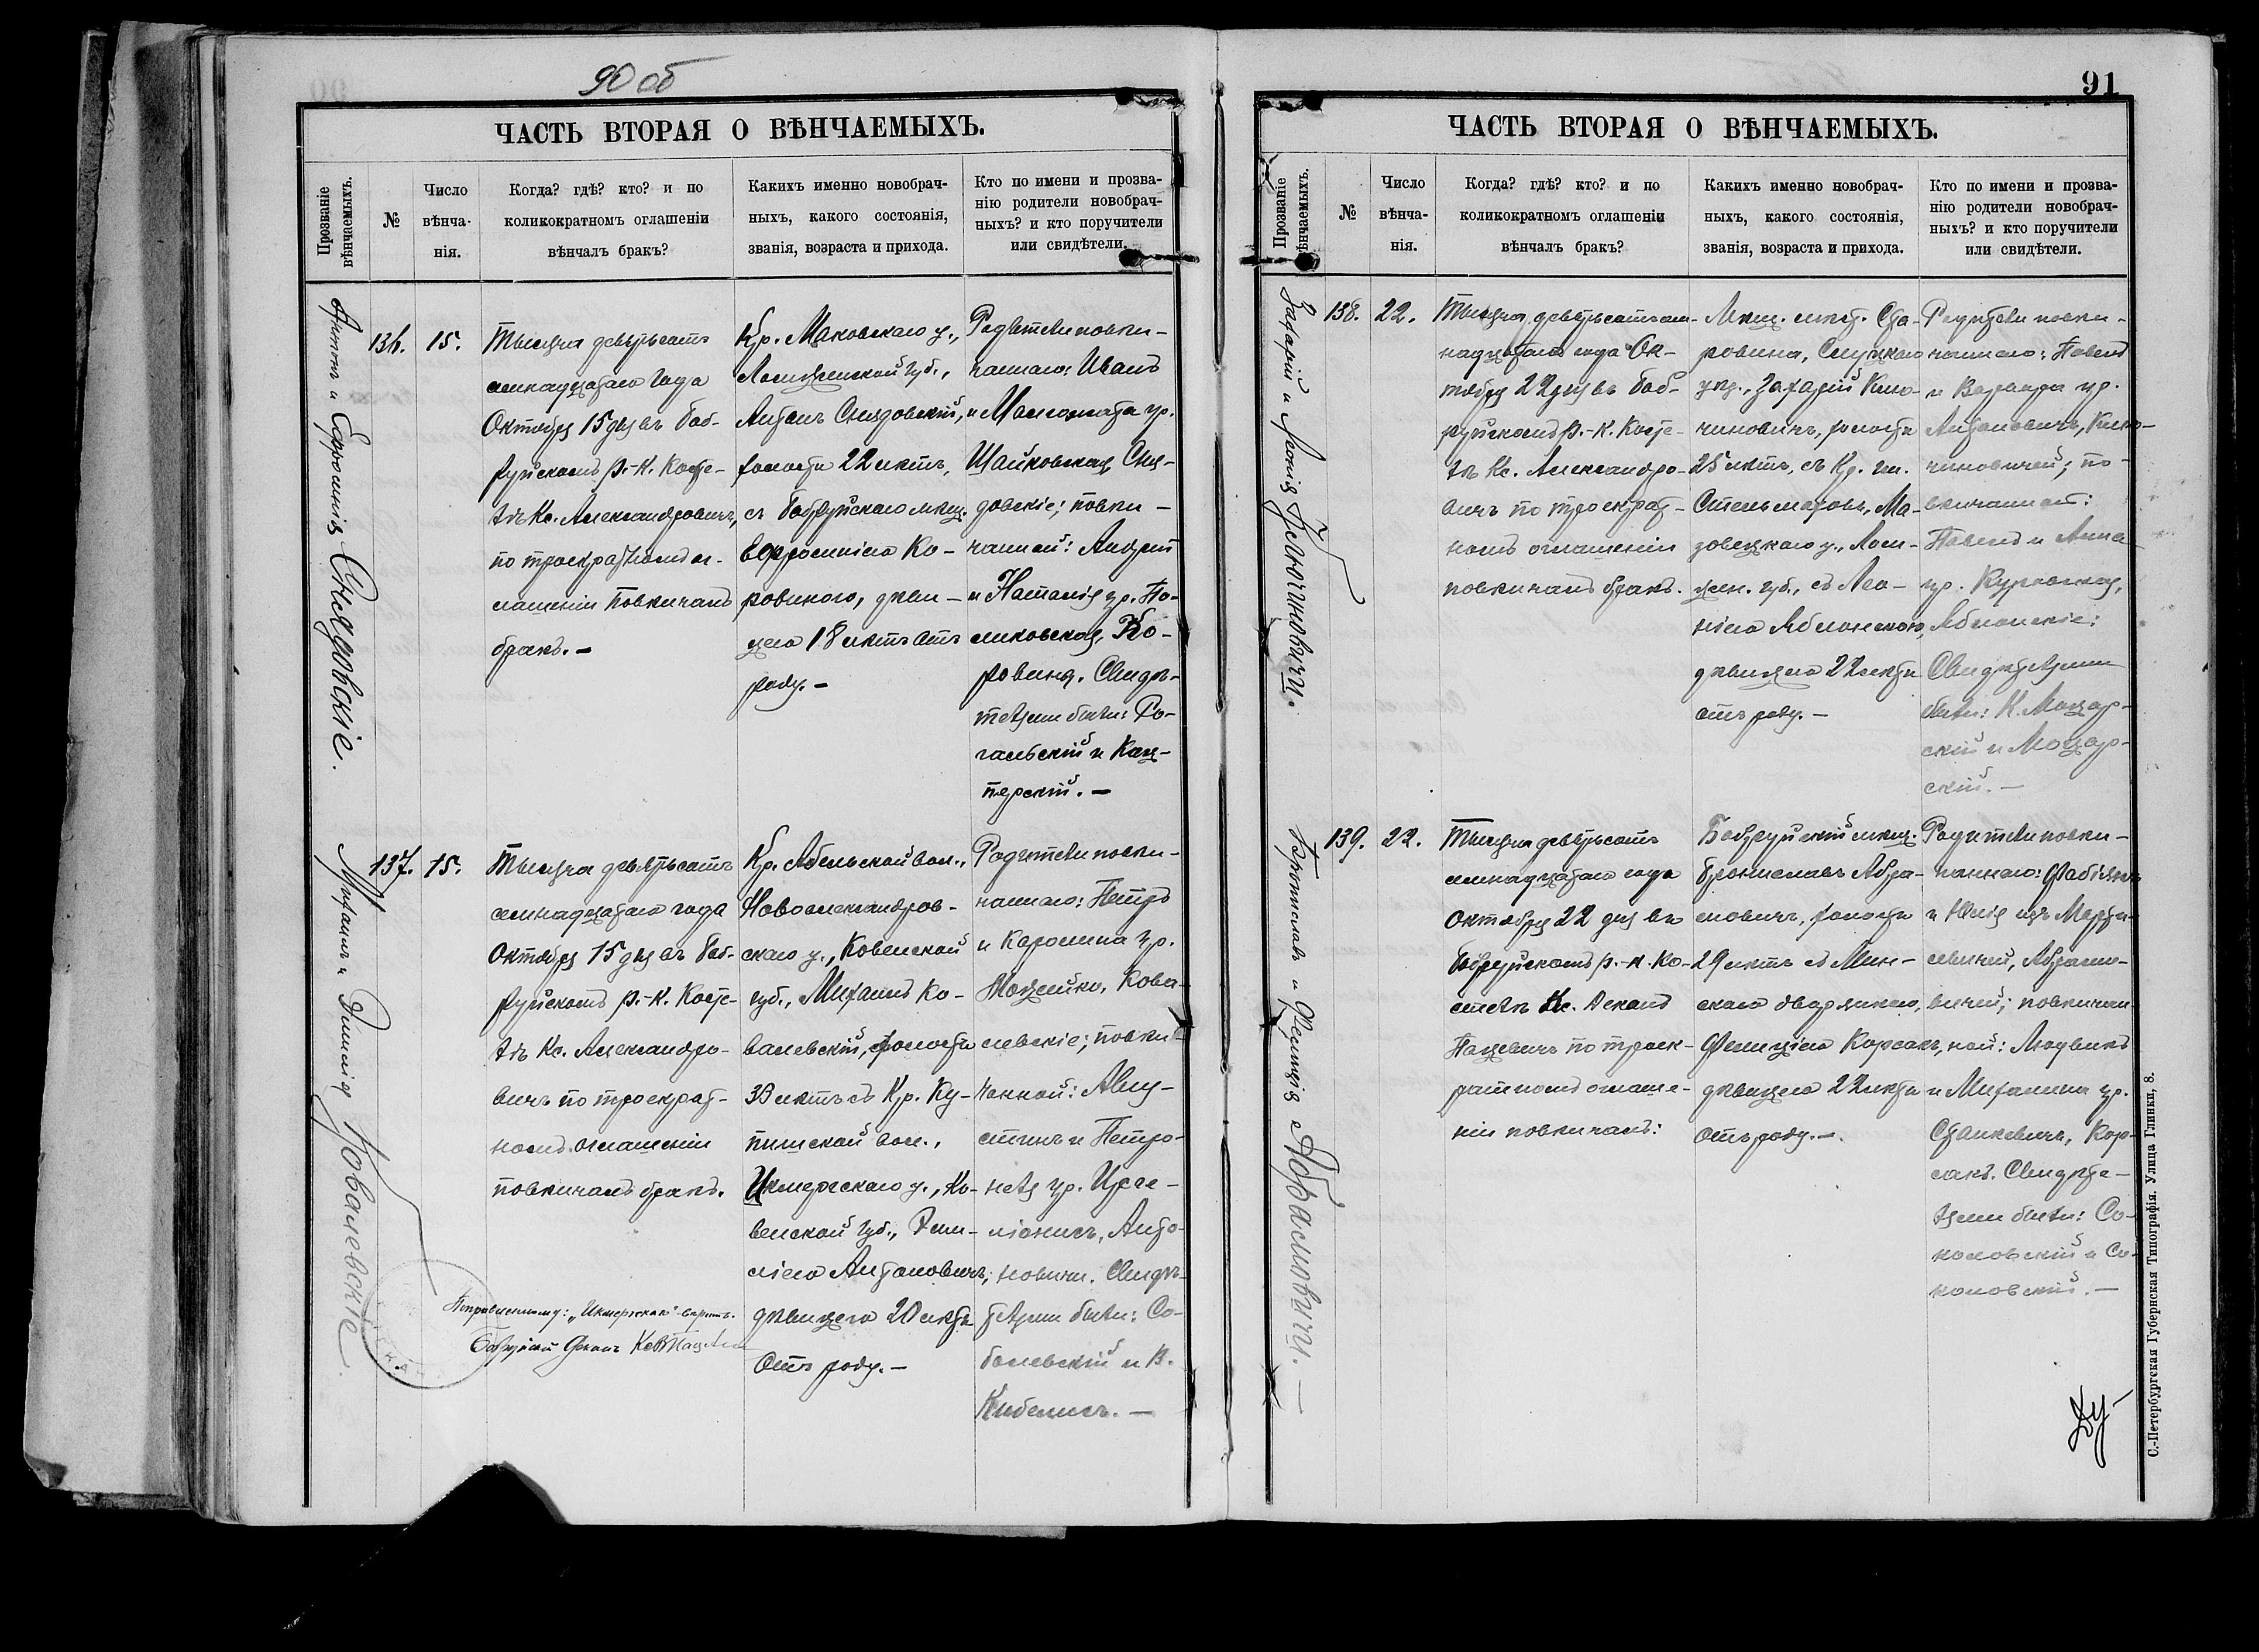 90 об
ЧАСТЬ ВТОРАЯ О ВѢНЧАЕМЫХЪ.
Прозваніе
вѣнчаемыхъ.
№
Число
вѣнча-
нія.
Когда? гдѣ? кто? и по
коликократномъ оглашеніи
вѣнчалъ бракъ?
Какихъ именно новобрач-
ныхъ, какого состоянія,
званія, возраста и прихода.
Кто по имени и прозва-
нію родители новобрач-
ныхъ? и кто поручители
или свидѣтели.
Антонъ и Ефросинія Снядовскіе.
136.
15.
Тысяча девятьсотъ
семнадцатаго года
Октября 15 дня въ Боб-
руйскомъ р.-к. Косте-
лѣ Кс. Александровичъ,
по троекратномъ ог-
лашеніи повѣнчалъ
бракъ. –
Кр. Маковскаго у.,
Ломжинской губ.,
Антонъ Снядовскій,
холостъ 22 лѣтъ,
съ Бобруйскою мѣщ.
Ефросиніею Ко-
ровиною, дѣви-
цею 18 лѣтъ отъ
роду. –
Родители повѣн-
чаннаго: Иванъ
и Малгожата ур.
Шайковская, Сня-
довскіе; повѣн-
чанной: Андрей
и Наталія ур. По-
ликовская, Ко-
ровины. Свидѣ-
телями были: Ро-
гальскій и Кац-
перскій. –
Михаилъ и Эмилія Ковалевскіе.
137.
15.
Тысяча девятьсотъ
семнадцатаго года
Октября 15 дня въ Боб-
руйскомъ р.-к. Косте-
лѣ Кс. Александро-
вичъ по троекрат-
номъ оглашеніи
повѣнчалъ бракъ.
Кр. Абельской вол.,
Новоалександров-
скаго у., Ковенской
губ., Михаилъ Ко-
валевскій, холостъ
33 лѣтъ съ Кр. Ку-
пишской вол.,
Вилкомирскаго у., Ко-
венской губ., Эми-
ліею Антоновичъ,
дѣвицею 20 лѣтъ
отъ роду. –
Родители повѣн-
чаннаго: Петръ
и Каролина ур.
Можейко, Кова-
левскіе; повѣн-
чанной: Авгу-
стинъ и Петро-
неля ур.
Анто-
новичи. Свидѣ-
телями были: Со-
болевскій и В.
Кибелисъ. –
Бобруйскій Деканъ
91
ЧАСТЬ ВТОРАЯ О ВѢНЧАЕМЫХЪ.
Прозваніе
вѣнчаемыхъ.
№
Число
вѣнча-
нія.
Когда? гдѣ? кто? и по
коликократномъ оглашеніи
вѣнчалъ бракъ?
Какихъ именно новобрач-
ныхъ, какого состоянія,
званія, возраста и прихода.
Кто по имени и прозва-
нію родители новобрач-
ныхъ? и кто поручители
или свидѣтели.
138.
22.
Тысяча девятьсотъ сем-
надцатаго года Ок-
тября 22 дня въ Боб-
руйскомъ р.-к. Косте-
лѣ Кс. Александро-
вичъ по троекрат-
номъ оглашеніи
повѣнчалъ бракъ.
Мѣщ. мѣст. Ста-
робина, Слуцкаго
уѣз., Захарій
холостъ
25 лѣтъ, съ Кр. гм.
Ма-
зовецкаго у., Лом-
жин. губ., съ Лео-
ніею Яблонскою,
дѣвицею 22 лѣтъ
отъ роду. –
Родители повѣн-
чаннаго: Павелъ
и Варвара ур.
Антоновичъ,
по-
вѣнчанной:
Павелъ и Анна
ур. Куровская,
Яблонскіе;
Свидѣтелями
были: К. Мощар-
скій и Мощар-
скій. –
Брониславъ и Фелиція Абрамовичи. –
139.
22.
Тысяча девятьсотъ
семнадцатаго года
Октября 22 дня въ
Бобруйскомъ р.-к. Ко-
стелѣ Кс. Деканъ
Пацевичъ по троек-
ратномъ оглаше-
ніи повѣнчалъ:
Бобруйскій мѣщ.
Брониславъ Абра-
мовичъ, холостъ
29 лѣтъ съ Мин-
скою дворянкою,
Фелиціею Корсакъ,
дѣвицею 22 лѣтъ
отъ роду. –.
Родители повѣн-
чаннаго: Фабіянъ
и Юлія изъ Марти-
севичей, Абрамо-
вичей; повѣнчан-
ной: Людвикъ
и Михалина ур.
Станкевичъ, Кор-
сакъ. Свидѣте-
лями были: Со-
коловскій и Со-
коловскій. –
С.-Петербургская Губернская Типографія. Улица Глинки, 8.